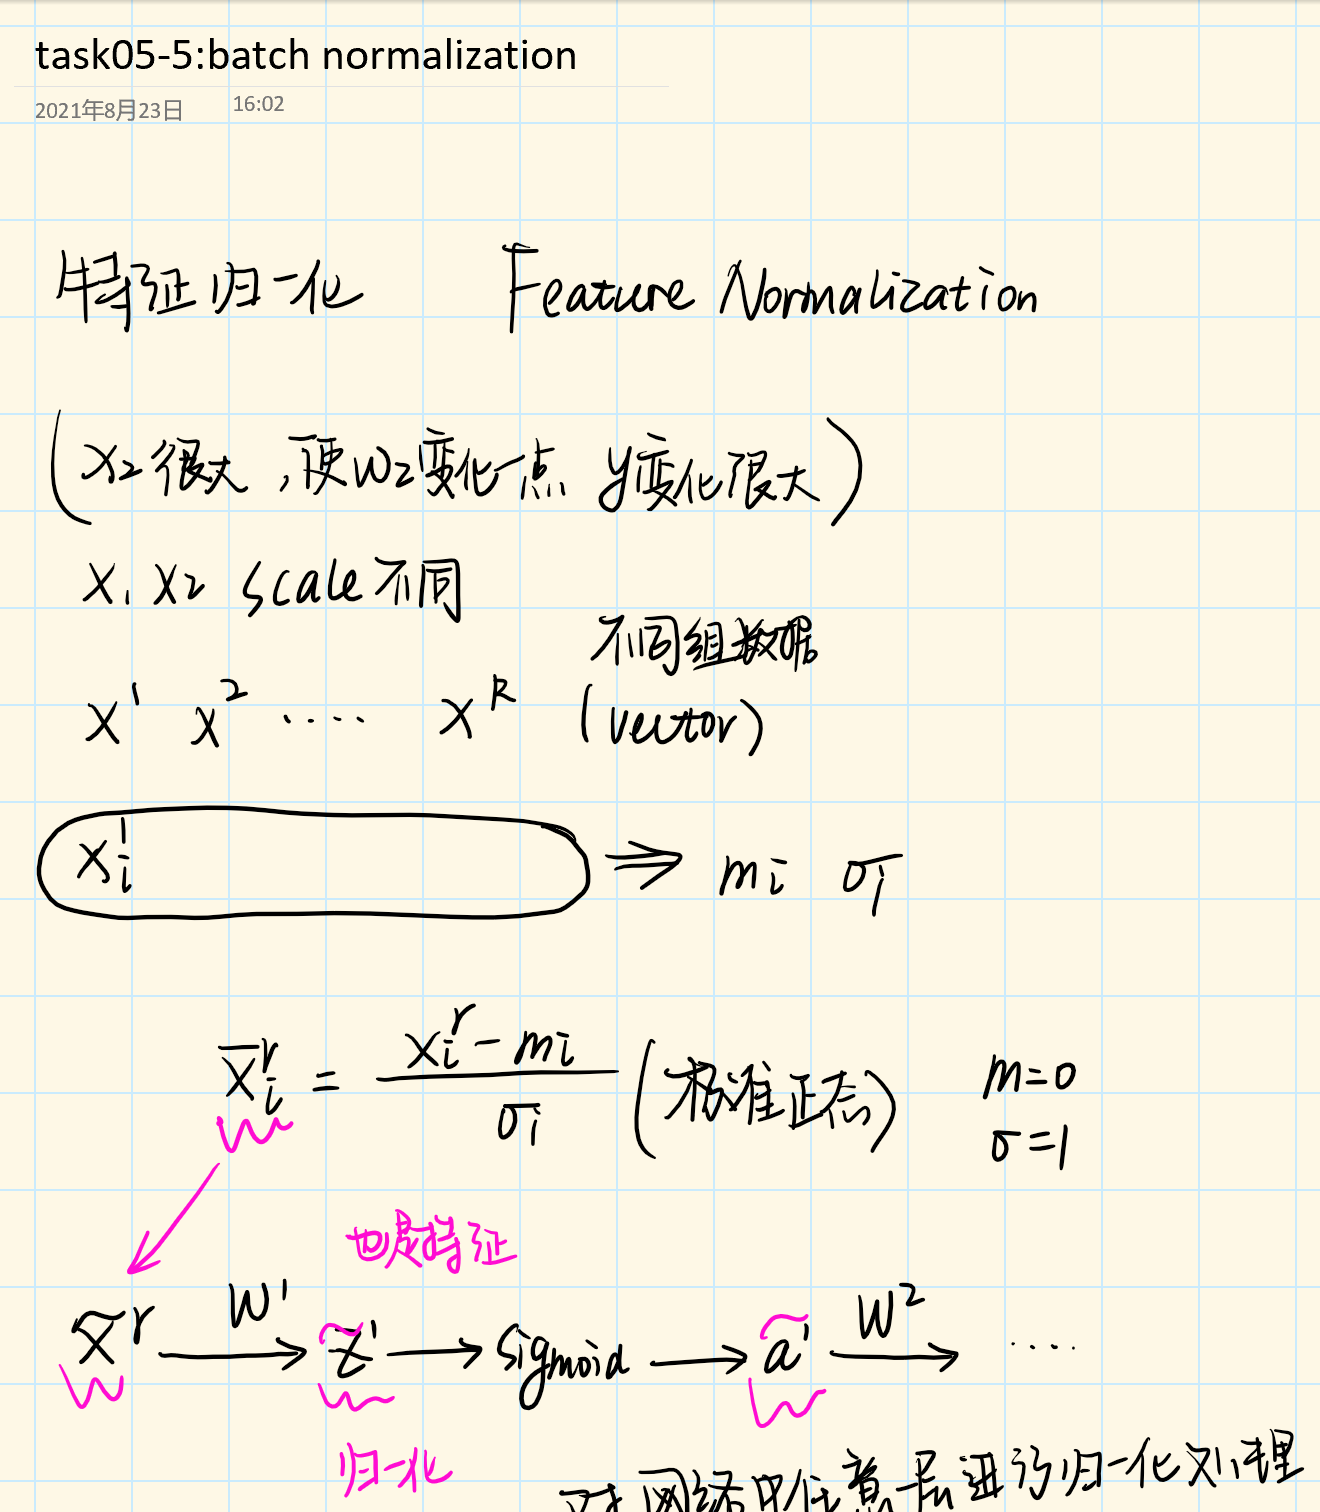 task05-5:batch normalization
2021年8月23日 16:02
特征归一化 Feature Normalization
(x₂很大,使w₂变化一点 y变化很大)
x₁ x₂ scale不同
不同组数据
x¹ x² ···· xᴿ (vector)
xᵢ¹ ⇒ mᵢ σᵢ
x̅ᵢʳ = (xᵢʳ - mᵢ) / σᵢ (标准正态) m=0
σ=1
也是特征
x̃ʳ W¹→ z̃¹ → sigmoid → ã¹ W²→ ····
归一化
对网络中任意层进行归一化处理